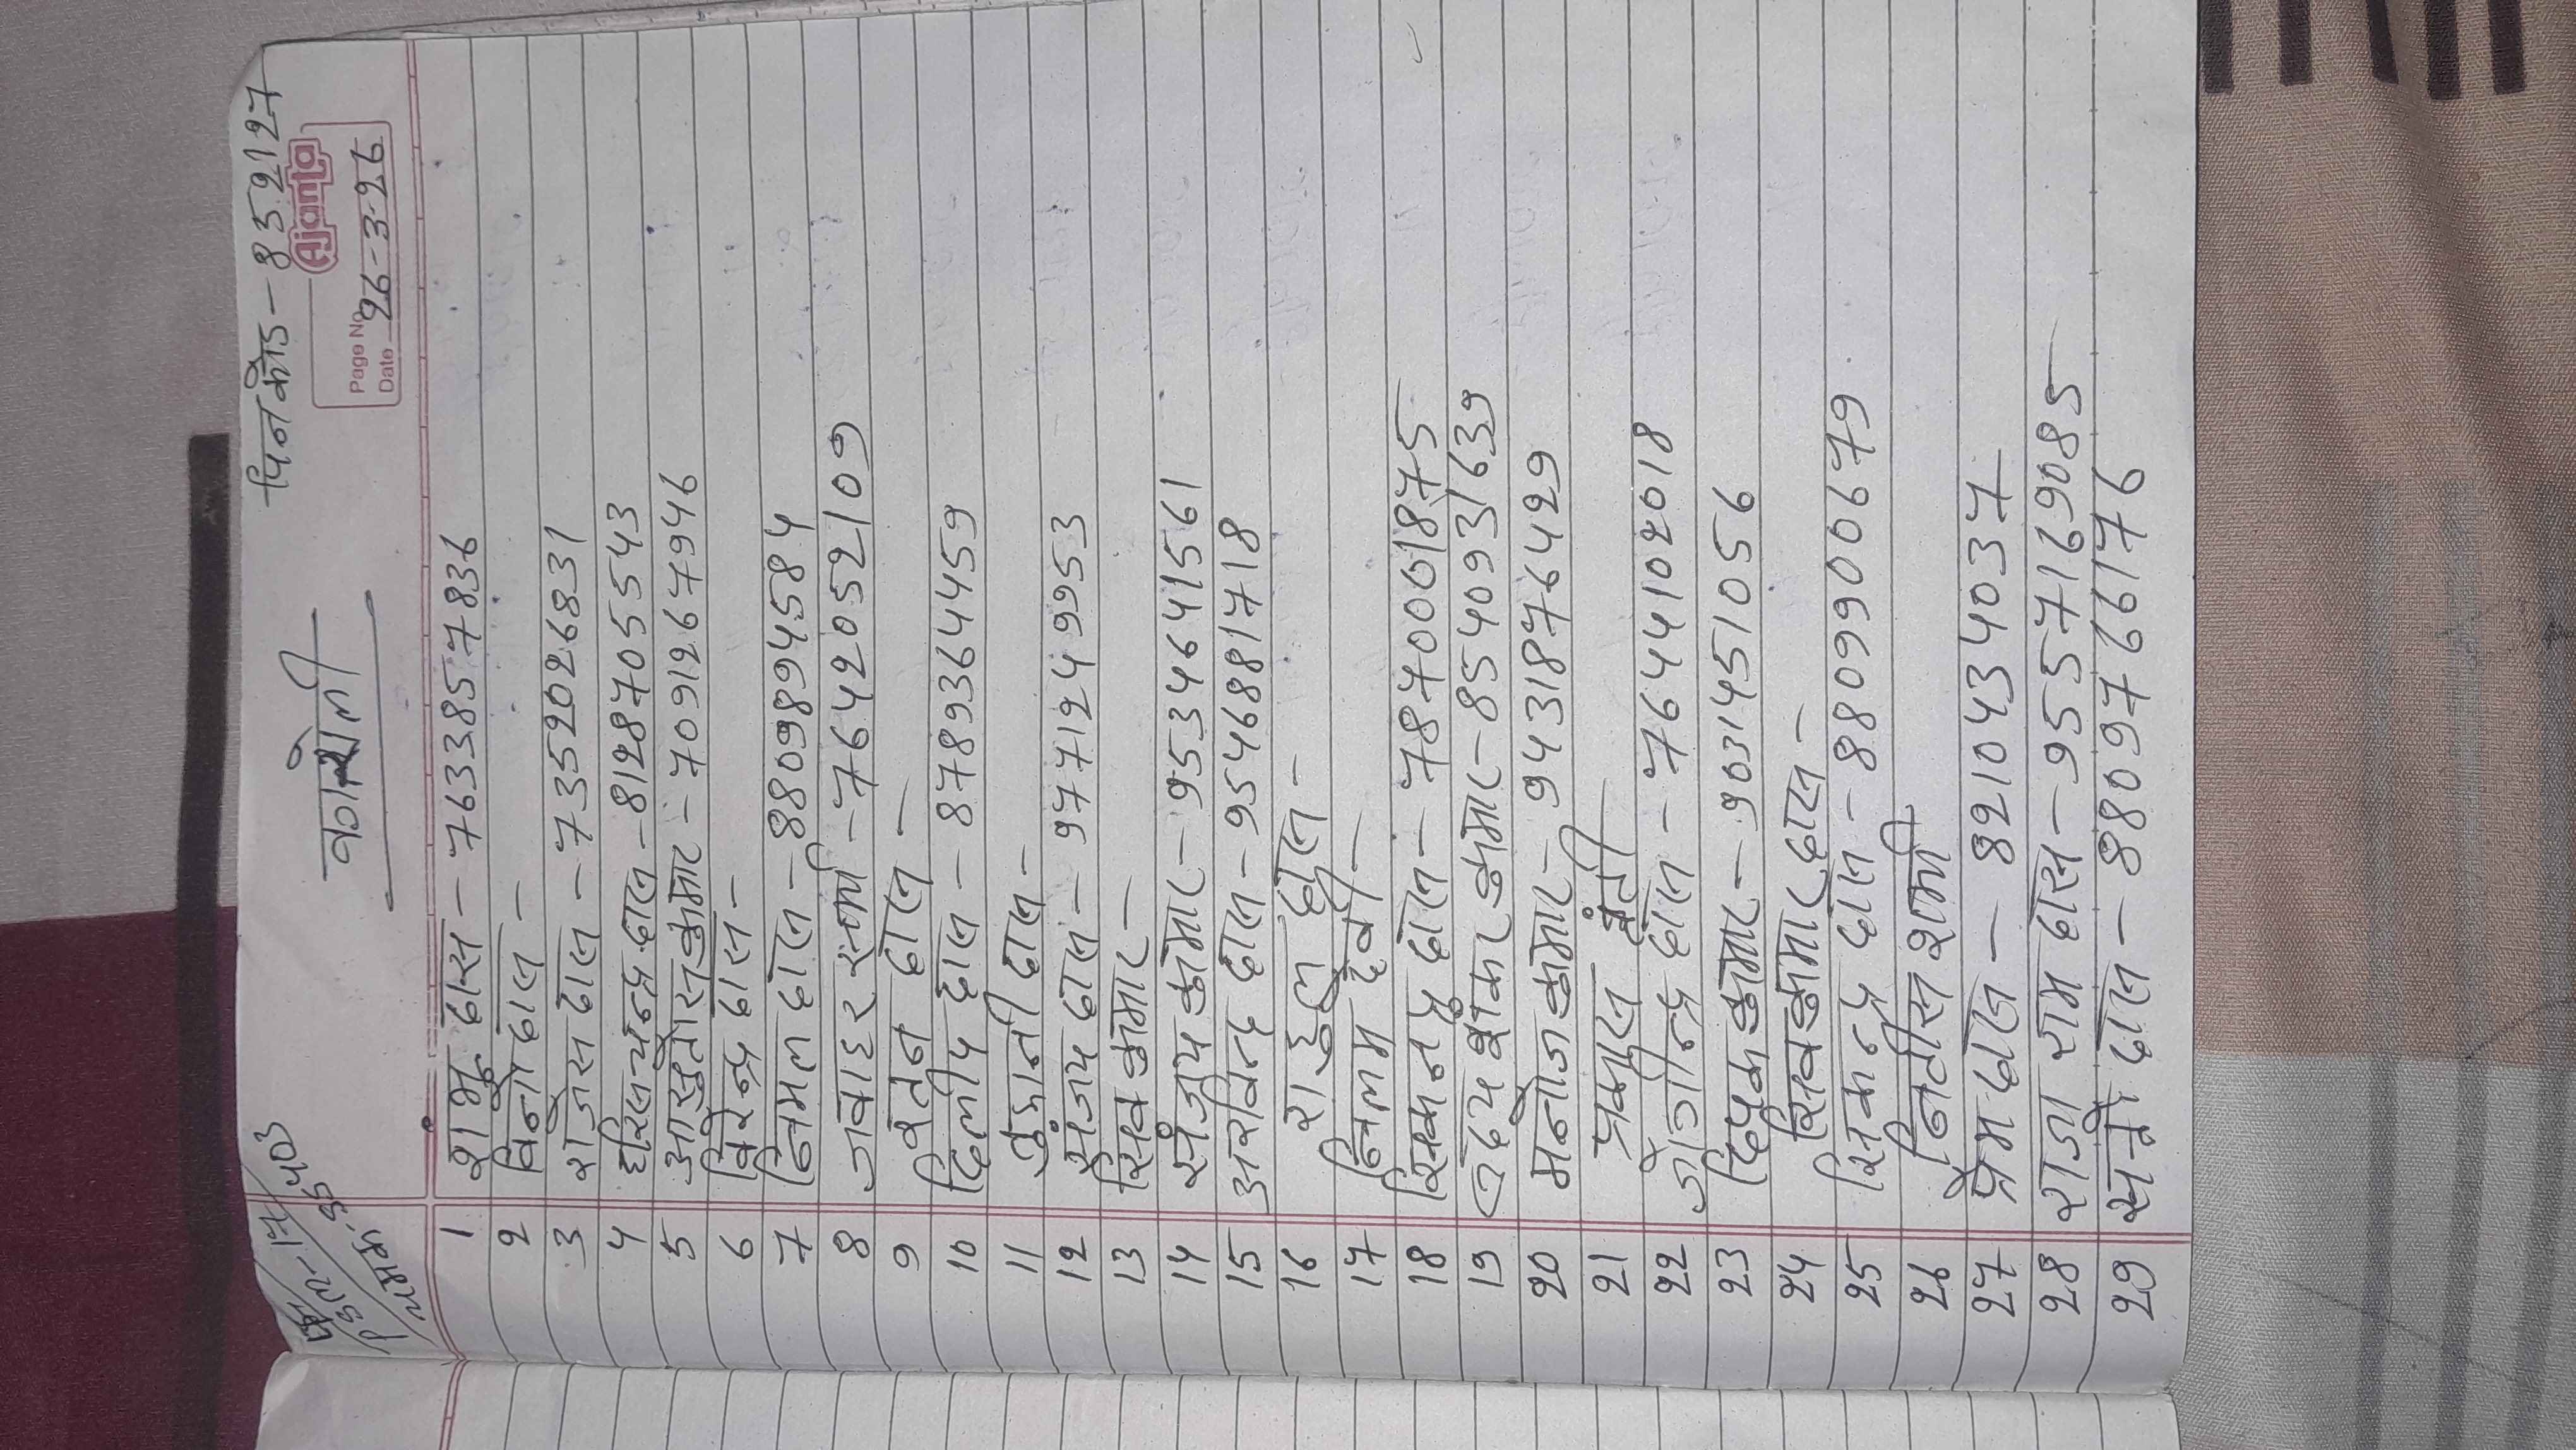 पिनकोड - 852127
कोराली
Ajanta
Page No.
Date 26-3-26
1 शम्भू दास - 7633857836
2 विनोद दास -
3 राजेस दास - 7352026831
4 हरिसचन्द्र दास - 8128705543
5 आसुतोस कुमार - 7091267946
6 विरेन्द्र दास -
7 निमल दास - 8809894584
8 जवाहर स्मा - 7642052109
9 दास -
10 दिलीप दास - 8789364459
11 दास -
12 संजय दास - 9771249953
13 सिव कुमार -
14 संजय कुमार - 9534641561
15 अरविन्द दास - 9546881718
16 राहुल दास -
17 निलम देवी -
18 दास - 7870001875
19 उदय शंकर कुमार - 8540931639
20 मनोज कुमार - 9431876429
21 प्रकास
22 जोगीन्द्र दास - 7644102018
23 दिपक कुमार - 9031451056
24 सिव कुमार दास -
25 दास - 8809900679
26 नितीस शर्मा
27 प्रेम दास - 8210434037
28 राजा राम दास - 9557169085
29 दास - 8809766176